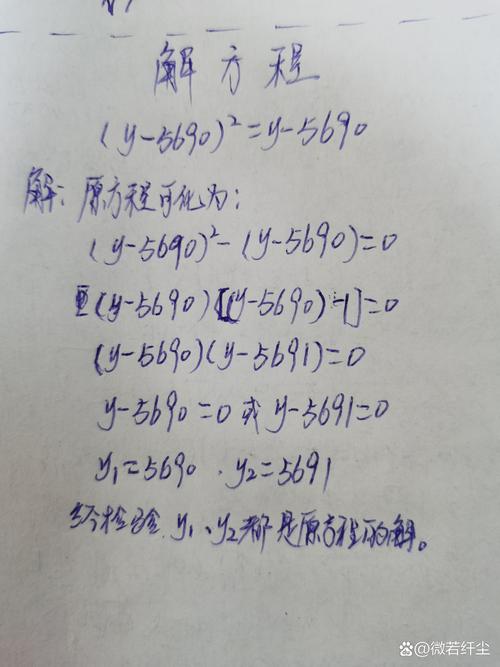 解方程
(y-5690)²=y-5690
解:原方程可化为:
(y-5690)²-(y-5690)=0
(y-5690)[(y-5690)-1]=0
(y-5690)(y-5691)=0
y-5690=0或y-5691=0
y₁=5690.y₂=5691
经检验y₁、y₂都是原方程的解。
百家号/微若纤尘